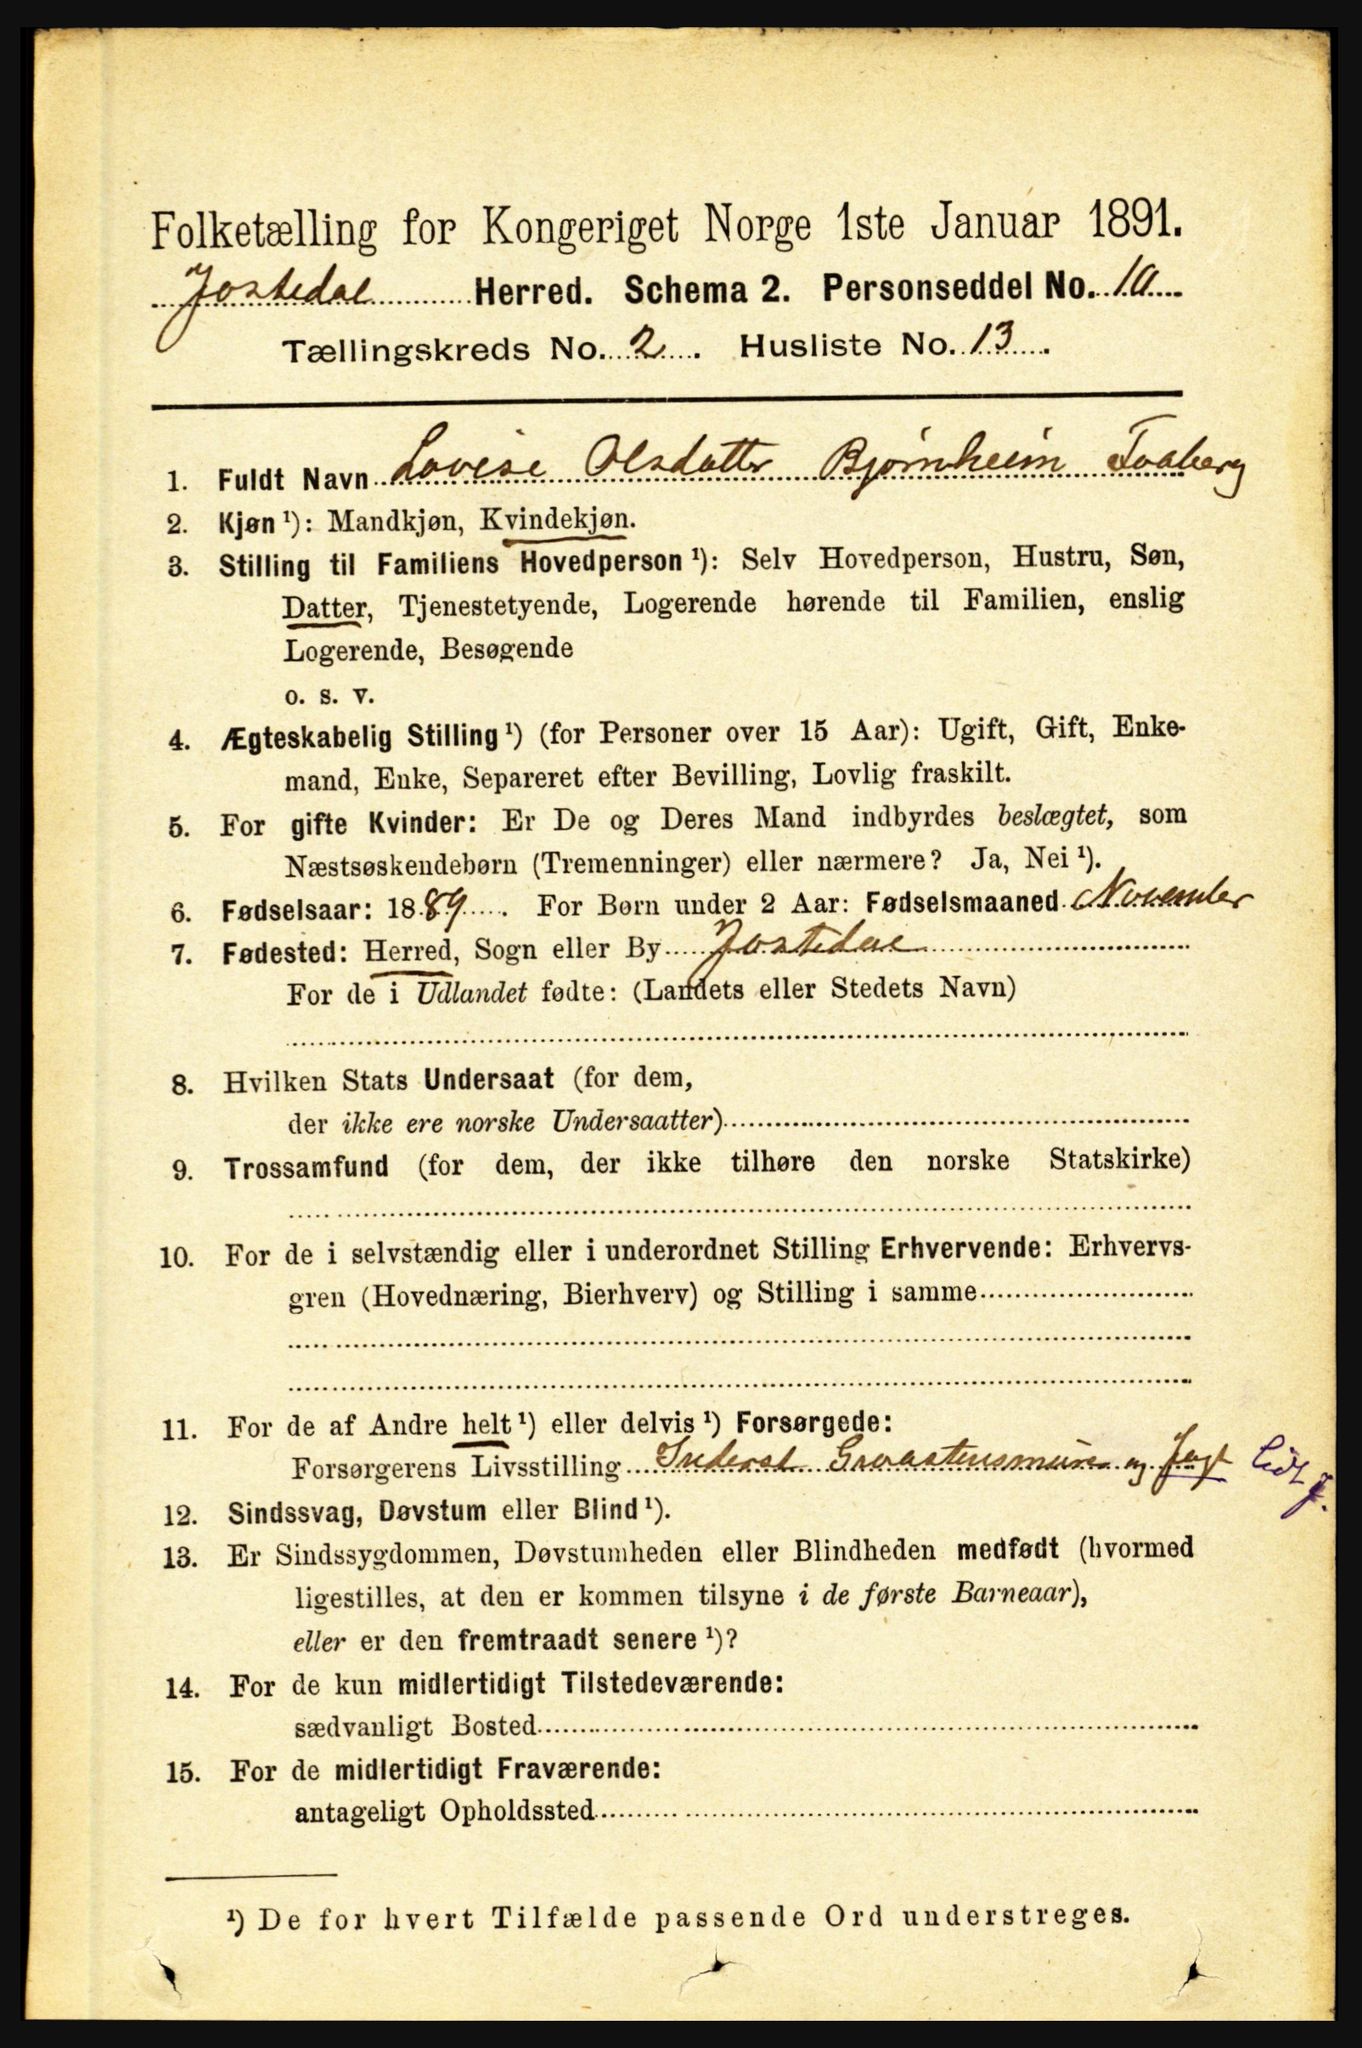 Folketælling for Kongeriget Norge 1ste Januar 1891.
Jostedal Herred. Schema 2. Personseddel No. 10
Tællingskreds No. 2. Husliste No. 13.
1. Fuldt Navn Lovise Olsdatter Bjørnheim Faaberg
2. Kjøn ¹): Mandkjøn, Kvindekjøn.
3. Stilling til Familiens Hovedperson ¹): Selv Hovedperson, Hustru, Søn,
Datter, Tjenestetyende, Logerende hørende til Familien, enslig
Logerende, Besøgende
o. s. v.
4. Ægteskabelig Stilling ¹) (for Personer over 15 Aar): Ugift, Gift, Enke-
mand, Enke, Separeret efter Bevilling, Lovlig fraskilt.
5. For gifte Kvinder: Er De og Deres Mand indbyrdes beslægtet, som
Næstsøskendebørn (Tremenninger) eller nærmere? Ja, Nei ¹).
6. Fødselsaar: 1889. For Børn under 2 Aar: Fødselsmaaned November
7. Fødested: Herred, Sogn eller By Jostedal
For de i Udlandet fødte: (Landets eller Stedets Navn)
8. Hvilken Stats Undersaat (for dem,
der ikke ere norske Undersaatter)
9. Trossamfund (for dem, der ikke tilhøre den norske Statskirke)
10. For de i selvstændig eller i underordnet Stilling Erhvervende: Erhvervs-
gren (Hovednæring, Bierhverv) og Stilling i samme
11. For de af Andre helt ¹) eller delvis ¹) Forsørgede:
Forsørgerens Livsstilling Inderst og Jagt lidt J.
12. Sindssvag, Døvstum eller Blind ¹).
13. Er Sindssygdommen, Døvstumheden eller Blindheden medfødt (hvormed
ligestilles, at den er kommen tilsyne i de første Barneaar),
eller er den fremtraadt senere ¹)?
14. For de kun midlertidigt Tilstedeværende:
sædvanligt Bosted
15. For de midlertidigt Fraværende:
antageligt Opholdssted
¹) De for hvert Tilfælde passende Ord understreges.